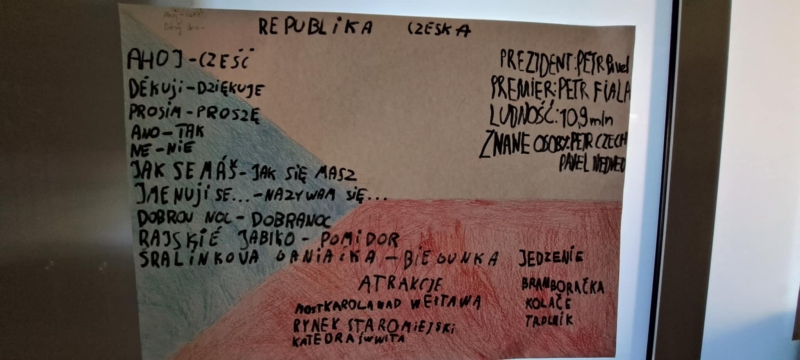 REPUBLIKA CZESKA
AHOJ-CZEŚĆ
DĚKUJI-DZIĘKUJE
PROSIM-PROSZĘ
ANO-TAK
NE-NIE
JAK SE MÁŠ-JAK SIĘ MASZ
JMENUJI SE...-NAZYWAM SIĘ...
DOBROU NOC-DOBRANOC
RAJSKIÉ JABIŁO-POMIDOR
SRALINKOVA GANIAIKA-BIEGUNKA
PREZIDENT:PETR PAVEL
PREMIER:PETR FIALA
LUDNOŚĆ:10,9 mln
ZNANE OSOBY:PETR CZECH
PAVEL NEDVED
ATRAKCJE
MOST KAROLA NAD WEŁTAWĄ
RYNEK STAROMIEJSKI
KATEDRA ŚW WITA
JEDZENIE
BRAMBORAČKA
KOLAČE
TRDLNIK